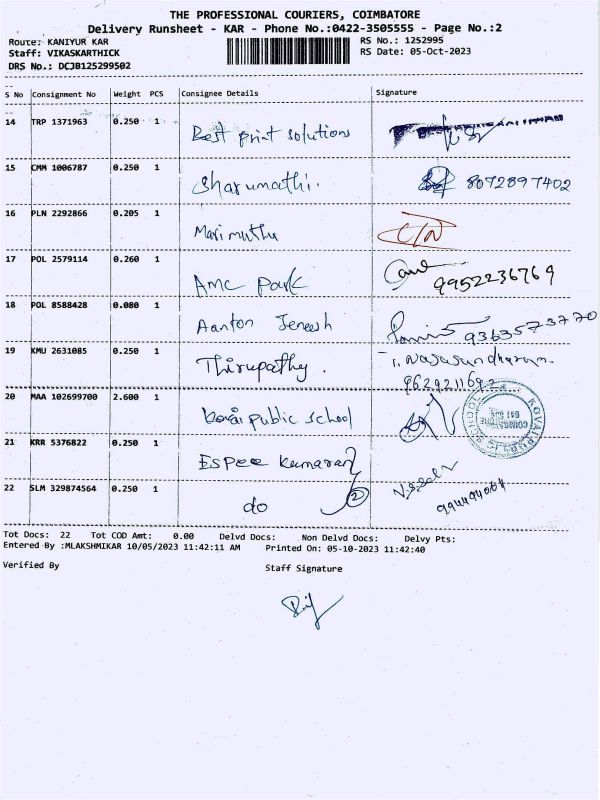 THE PROFESSIONAL COURIERS, COIMBATORE
Delivery Runsheet - KAR - Phone No.:0422-3505555 - Page No.:2
Route: KANIYUR KAR RS No.: 1252995
Staff: VIKASKARTHICK RS Date: 05-Oct-2023
DRS No.: DCJB125299502
S No Consignment No Weight PCS Consignee Details Signature
14 TRP 1371963 0.250 1 Best print solutions
15 CMM 1006787 0.250 1 Sharumathi. 8072897402
16 PLN 2292866 0.205 1 Marimuthu
17 POL 2579114 0.260 1 AMC Park 9952236769
18 POL 8588428 0.080 1 Aanton Jeneesh 9363573770
19 KMU 2631085 0.250 1 Thirupathy. T. Nasasundharam.
9629211692
20 MAA 102699700 2.600 1 Kovai public school
21 KRR 5376822 0.250 1 Espee Kumaran
22 SLM 329874564 0.250 1 do 2
Tot Docs: 22 Tot COD Amt: 0.00 Delvd Docs: Non Delvd Docs: Delvy Pts:
Entered By :MLAKSHMIKAR 10/05/2023 11:42:11 AM Printed On: 05-10-2023 11:42:40
Verified By Staff Signature